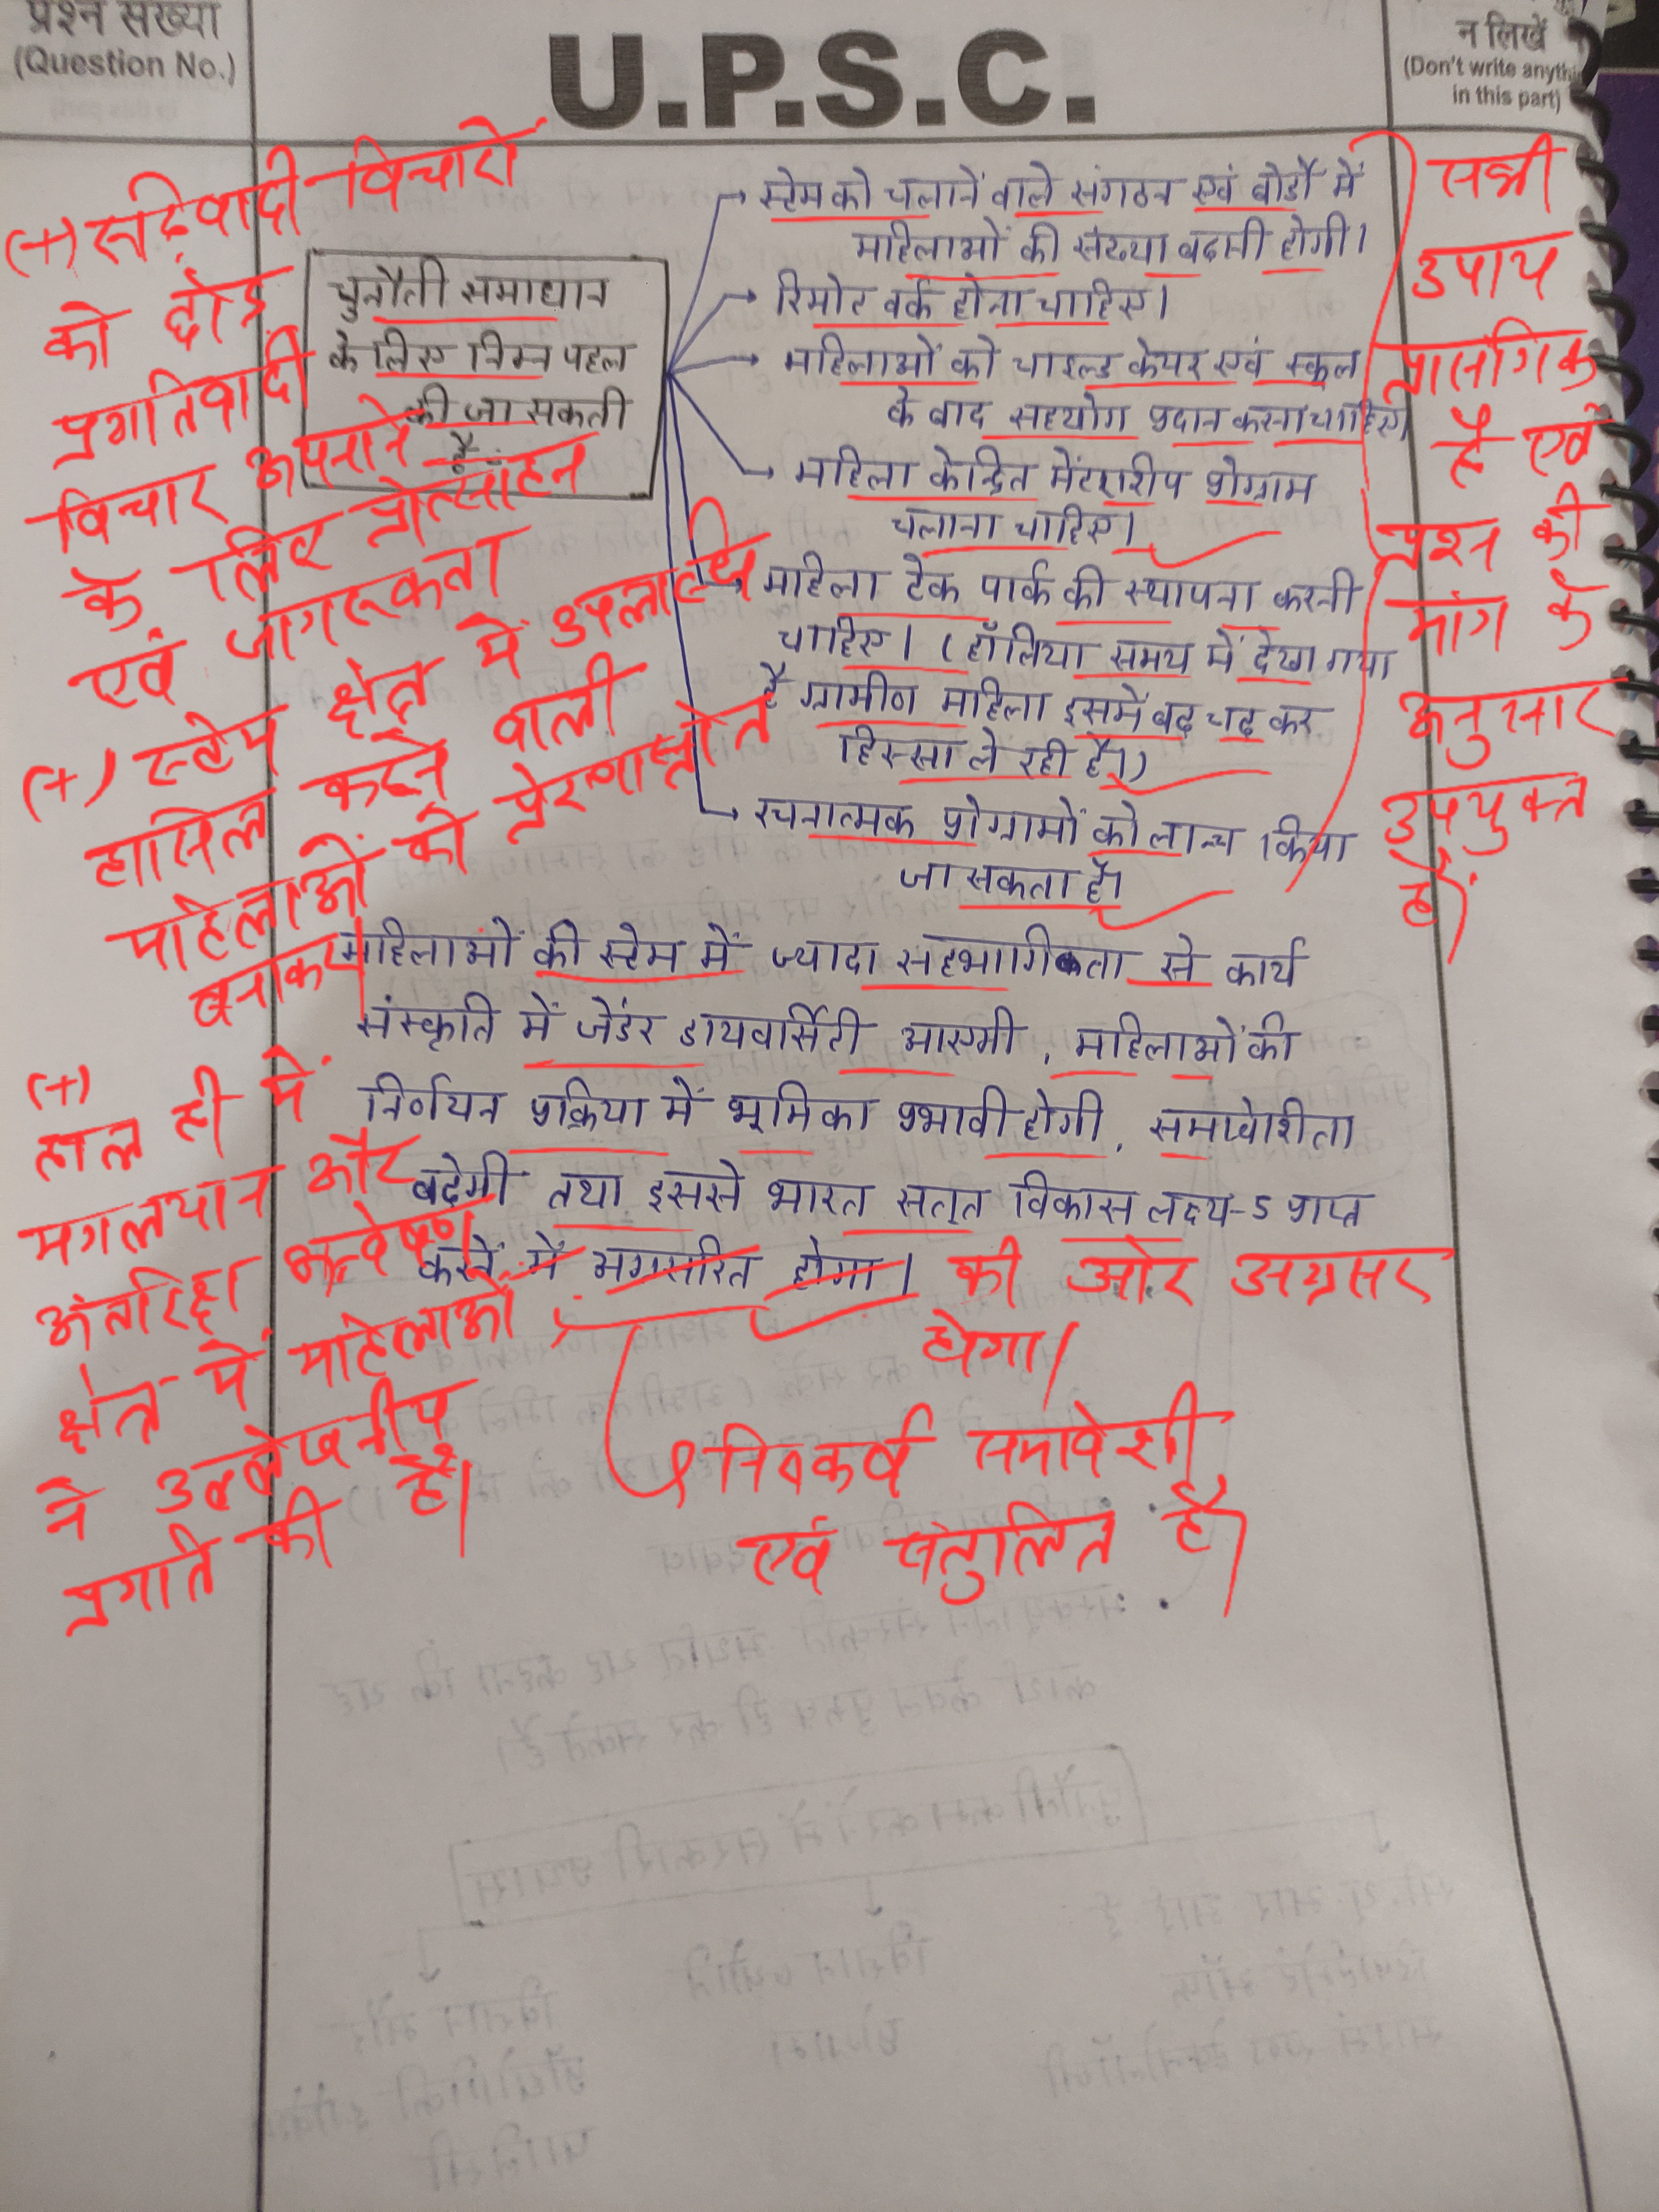 प्रश्न संख्या
(Question No.)
U.P.S.C.
न लिखें
(Don't write anythi
in this part)
चुनौती समाधान
के लिए निम्न पहल
की जा सकती
है-
→ स्टेम को चलाने वाले संगठन एवं बोर्डों में
महिलाओं की संख्या बढानी होगी।
→ रिमोट वर्क होना चाहिए।
→ महिलाओं को चाइल्ड केयर एवं स्कूल
के बाद सहयोग प्रदान करना चाहिए।
→ महिला केन्द्रित मेंटरशीप प्रोग्राम
चलाना चाहिए।
→ महिला टेक पार्क की स्थापना करनी
चाहिए। (हॉलिया समय में देखा गया
है ग्रामीण महिला इसमें बढ़ चढ़ कर
हिस्सा ले रही हैं।)
→ रचनात्मक प्रोग्रामों को लान्च किया
जा सकता है।
महिलाओं की स्टेम में ज्यादा सहभागिकता से कार्य
संस्कृति में जेंडर डायवर्सिटी आएगी, महिलाओं की
निर्णयन प्रक्रिया में भूमिका प्रभावी होगी, समावेशीता
बढेगी तथा इससे भारत सतत विकास लक्ष्य-5 प्राप्त
करने में अग्रसरित होगा। की ओर अग्रसर
होगा।
निष्कर्ष समावेशी
एवं संतुलित है।
(+) रूढ़िवादी विचारों
को छोड़
प्रगतिवादी
विचार अपनाने
के लिए प्रोत्साहन
एवं जागरूकता
(+) स्टेम क्षेत्र में उपलब्धि
हासिल करने वाली
महिलाओं को प्रेरणास्रोत
बनाकर।
(+)
हाल ही में
मंगलयान और
अंतरिक्ष अन्वेषण
क्षेत्र में महिलाओं
ने उल्लेखनीय
प्रगति की है।
सभी
उपाय
प्रासंगिक
है एवं
प्रश्न की
मांग के
अनुसार
उपयुक्त
है।